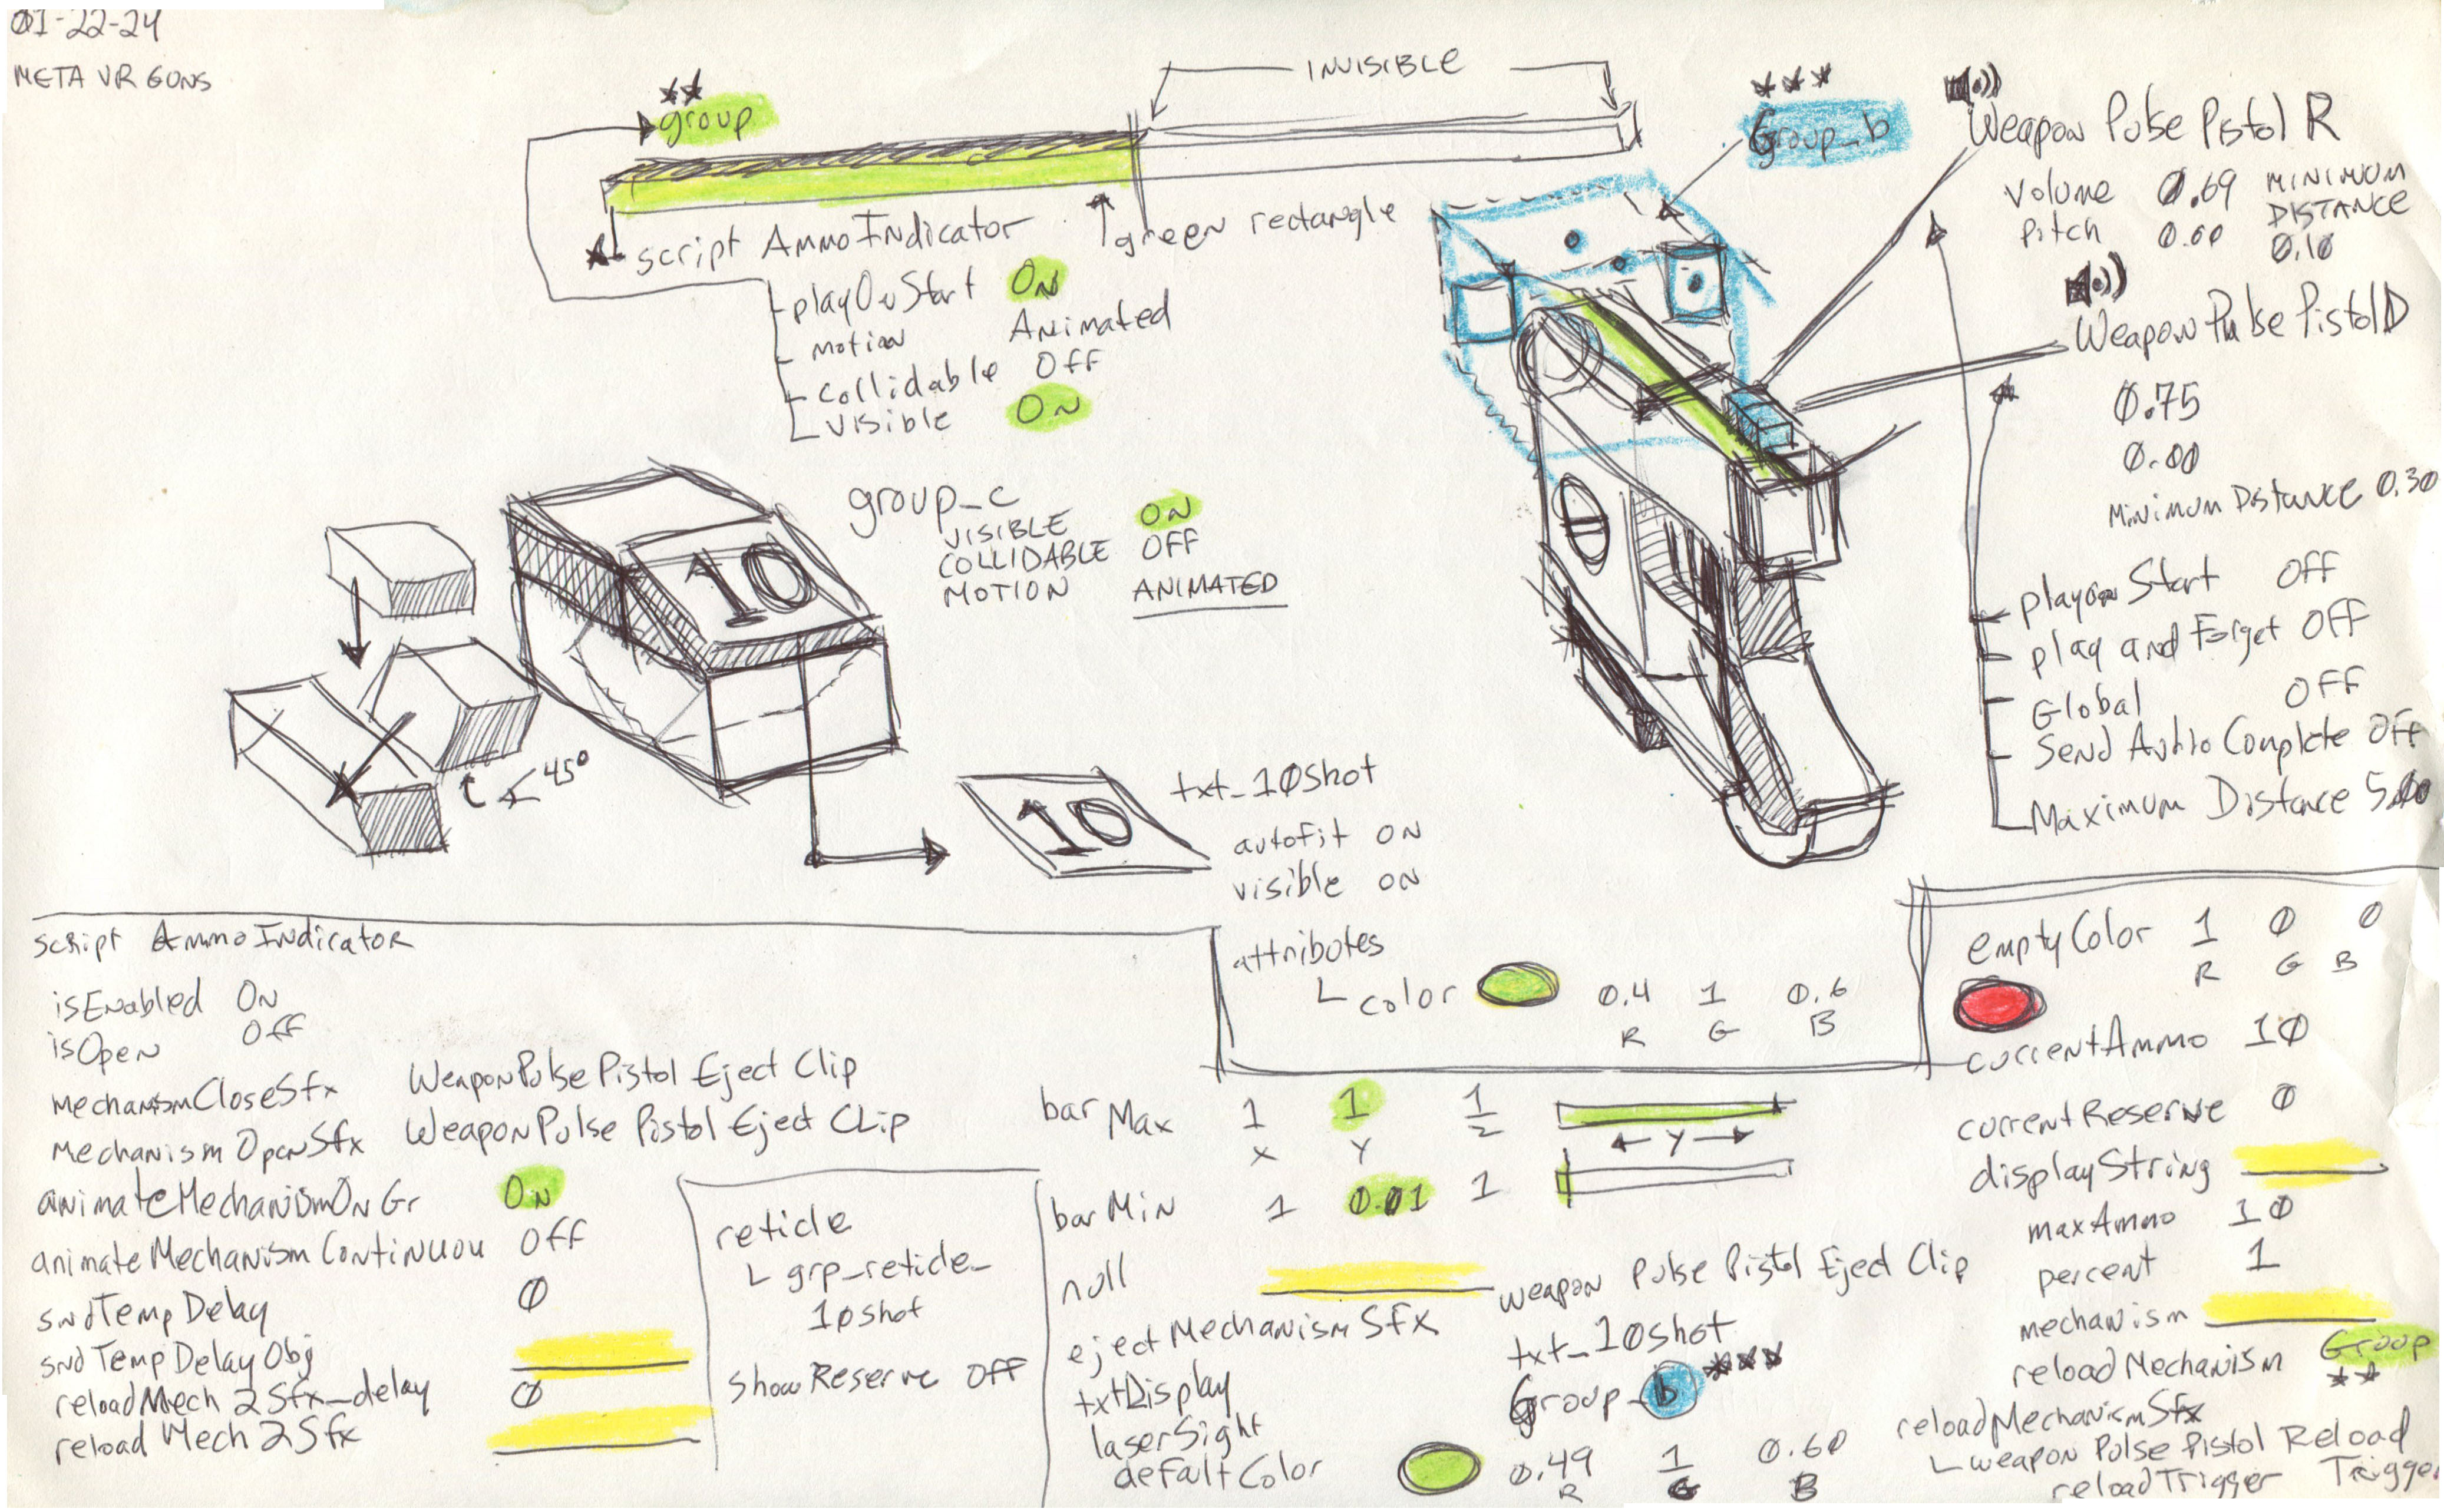 01-22-24
META VR GUNS
**
group
INVISIBLE
script AmmoIndicator
green rectangle
playOnStart On
Motion Animated
Collidable Off
Visible On
***
Group_b
Weapon Pulse Pistol R
Volume 0.69
Pitch 0.00
MINIMUM
DISTANCE
0.10
Weapon Pulse Pistol D
0.75
0.00
Minimum Distance 0.30
play on Start Off
play and Forget Off
Global Off
Send Audio Complete Off
Maximum Distance 5.00
group_c
VISIBLE ON
COLLIDABLE OFF
MOTION ANIMATED
10
45°
10
txt_10shot
autofit ON
visible ON
attributes
color 0.4 1 0.6
R G B
script AmmoIndicator
isEnabled On
isOpen Off
MechanismCloseSfx WeaponPulse Pistol Eject Clip
MechanismOpenSfx WeaponPulse Pistol Eject CLip
animateMechanismOnGr On
animateMechanismContinuou Off
sndTempDelay 0
sndTempDelayObj
reloadMech2Sfx_delay 0
reloadMech2Sfx
reticle
grp_reticle_
10shot
showReserve OFF
bar Max 1 1 1
X Y Z
Y
barMin 1 0.01 1
null
ejectMechanismSfx Weapon Pulse Pistol Eject Clip
txtDisplay txt_10shot
laserSight Group_b ***
defaltColor 0.49 1 0.60
R G B
emptyColor 1 0 0
R G B
currentAmmo 10
currentReserve 0
displayString
maxAmmo 10
percent 1
mechanism
reloadMechanism Group
**
reloadMechanismSfx
weapon Pulse Pistol Reload
reloadTrigger Trigger